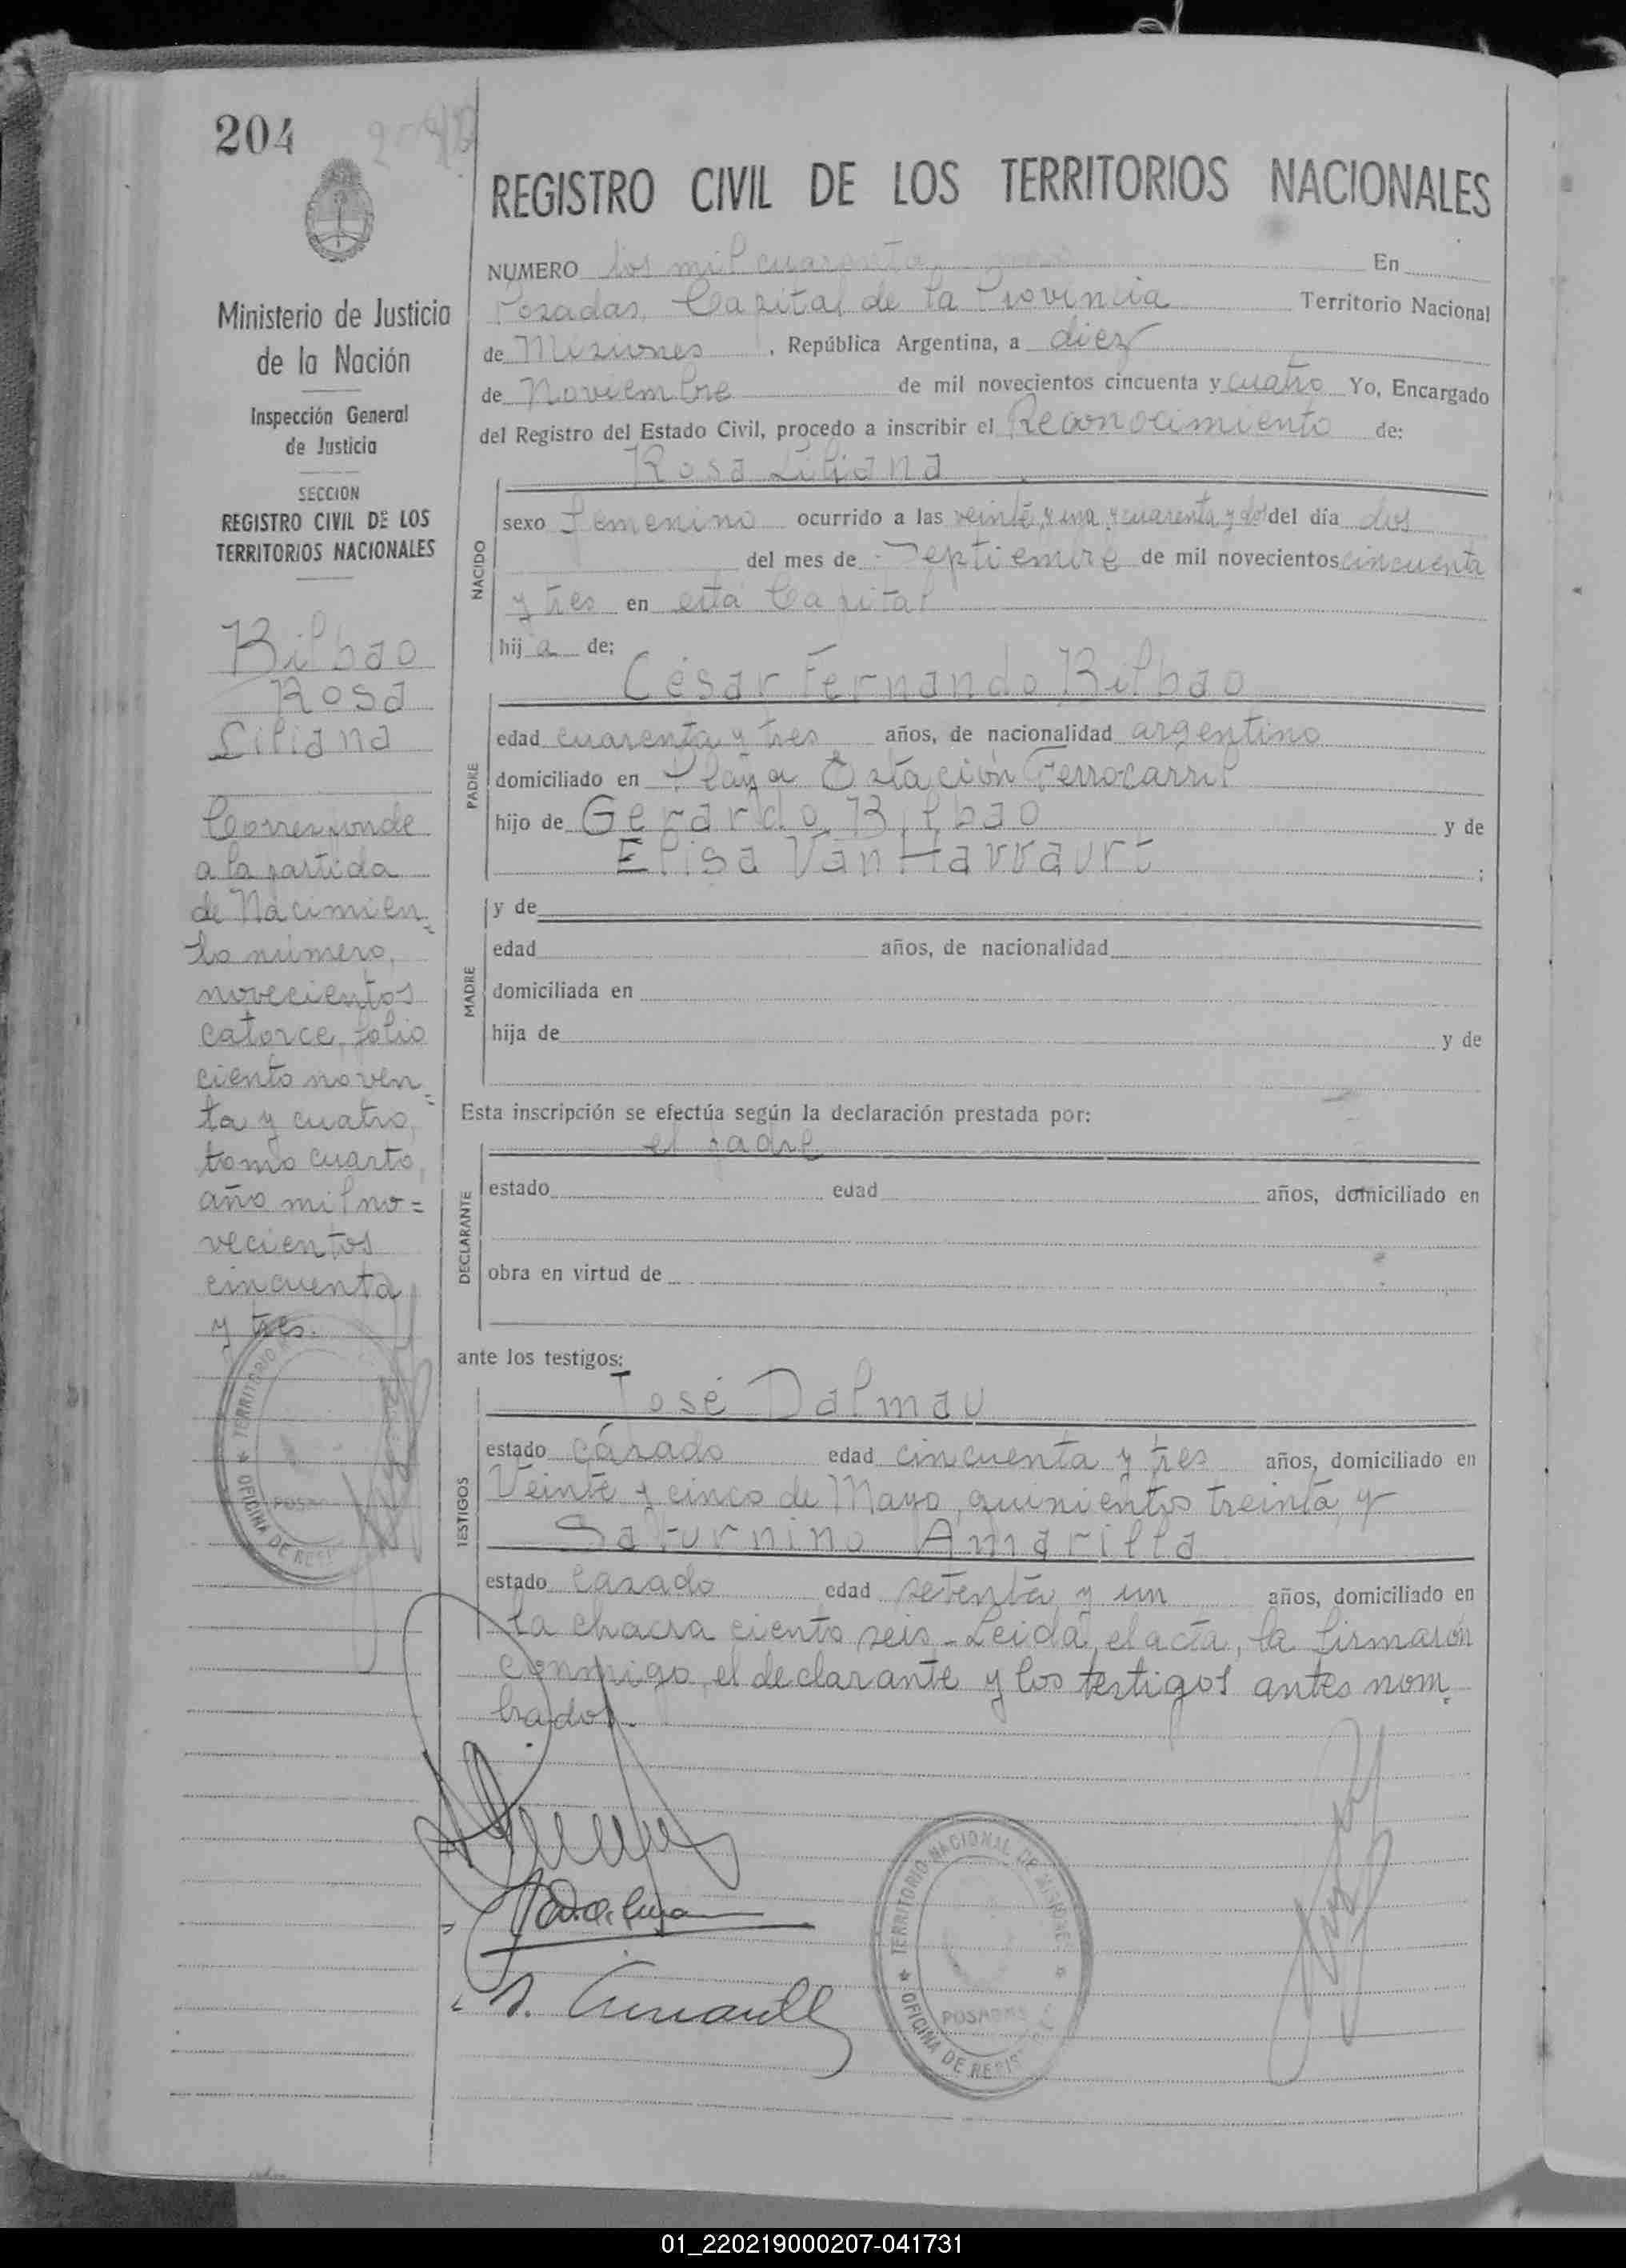 204
REGISTRO CIVIL DE LOS TERRITORIOS NACIONALES
Ministerio de Justicia
de la Nación
Inspección General
de Justicia
SECCION
REGISTRO CIVIL DE LOS
TERRITORIOS NACIONALES
Bilbao
Rosa
Liliana
Corresponde
a la partida
de Nacimien-
to número,
novecientos
catorce, folio
ciento noven-
ta y cuatro,
tomo cuarto,
año mil no=
vecientos
cincuenta
y tres.
NUMERO dos mil cuarenta En
Posadas, Capital de la Provincia Territorio Nacional
de Misiones, República Argentina, a diez
de Noviembre de mil novecientos cincuenta y cuatro Yo, Encargado
del Registro del Estado Civil, procedo a inscribir el Reconocimiento de:
Rosa Liliana
NACIDO
sexo femenino ocurrido a las veinte y una y cuarenta y dos del día dos
del mes de Septiembre de mil novecientos cincuenta
y tres en esta Capital
hija de:
César Fernando Bilbao
PADRE
edad cuarenta y tres años, de nacionalidad argentino
domiciliado en Playa Estación Ferrocarril
hijo de Gerardo Bilbao y de
Elisa Van
;
y de
MADRE
edad años, de nacionalidad
domiciliada en
hija de y de
Esta inscripción se efectúa según la declaración prestada por:
el padre
DECLARANTE
estado edad años, domiciliado en
obra en virtud de
ante los testigos:
José Dalmau
TESTIGOS
estado casado edad cincuenta y tres años, domiciliado en
Veinte y cinco de Mayo, quinientos treinta, y
Saturnino Amarilla
estado casado edad setenta y un años, domiciliado en
la chacra ciento seis.- Leida el acta, la firmaron
conmigo, el declarante y los testigos antes nom-
brados.-
TERRITORIO NACIONAL DE MISIONES
POSADAS
OFICINA DE REGIS
TERRITORIO
POSA
OFICINA DE REGI
01_220219000207-041731